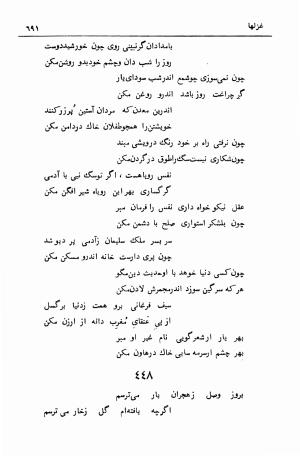 غزلها
۶۹۱
بامدادان گر نبینی روی چون خورشید دوست
روز را شب دان و چشم خود بدو روشن مکن
چون نمی‌سوزی چو شمع اندر شب سودای یار
گر چراغت روز باشد اندرو روغن مکن
اندرین معدن که مردان آستین پُر زر کنند
خویشتن را همچو طفلان خاک در دامن مکن
چون نرفتی راه بر خود رنگ درویشی مبند
چون شکاری نیست سگ را طوق در گردن مکن
نفس روباهست ، اگر تو سگ نیی با آدمی
گرگساری بهر این روباه شیر افگن مکن
عقل نیکو خواه داری نفس را فرمان مبر
چون بلشکر استواری صلح با دشمن مکن
سر بسر ملک سلیمان زآدمی پر دیو شد
چون پری دارست خانه اندرو مسکن مکن
چون کسی دنیا خوهد با او حدیث دین مگو
هر که سرگین سوزد اندر مجمرش لادن مکن
سیف فرغانی برو همت زدنیا برگسل
از پی عنقای مُغرب دانه از ارزن مکن
بهر یار ار شعر گویی نام غیر او مبر
بهر چشم ار سرمه سایی خاک در هاون مکن
۴۴۸
بروز وصل زهجران یار می‌ترسم
اگرچه یافته‌ام گل زخار می‌ترسم